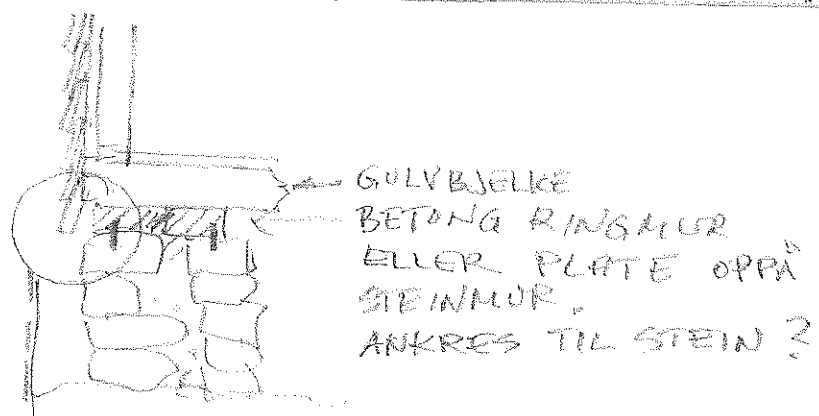 GULVBJELKE
BETONG RINGMUR
ELLER PLATE OPPÅ
STEINMUR.
ANKRES TIL STEIN?